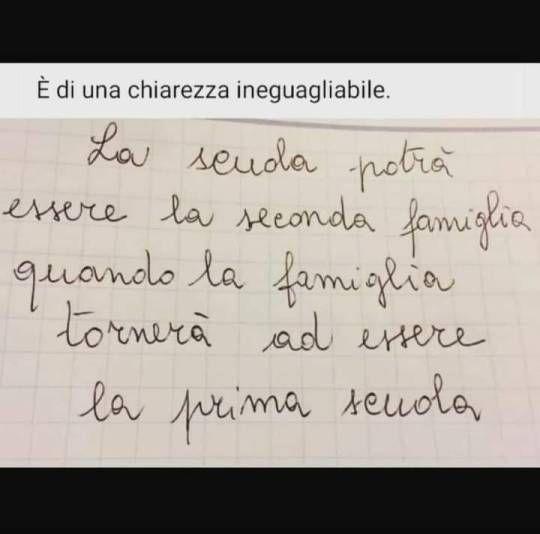 È di una chiarezza ineguagliabile.
La scuola potrà
essere la seconda famiglia
quando la famiglia
tornerà ad essere
la prima scuola